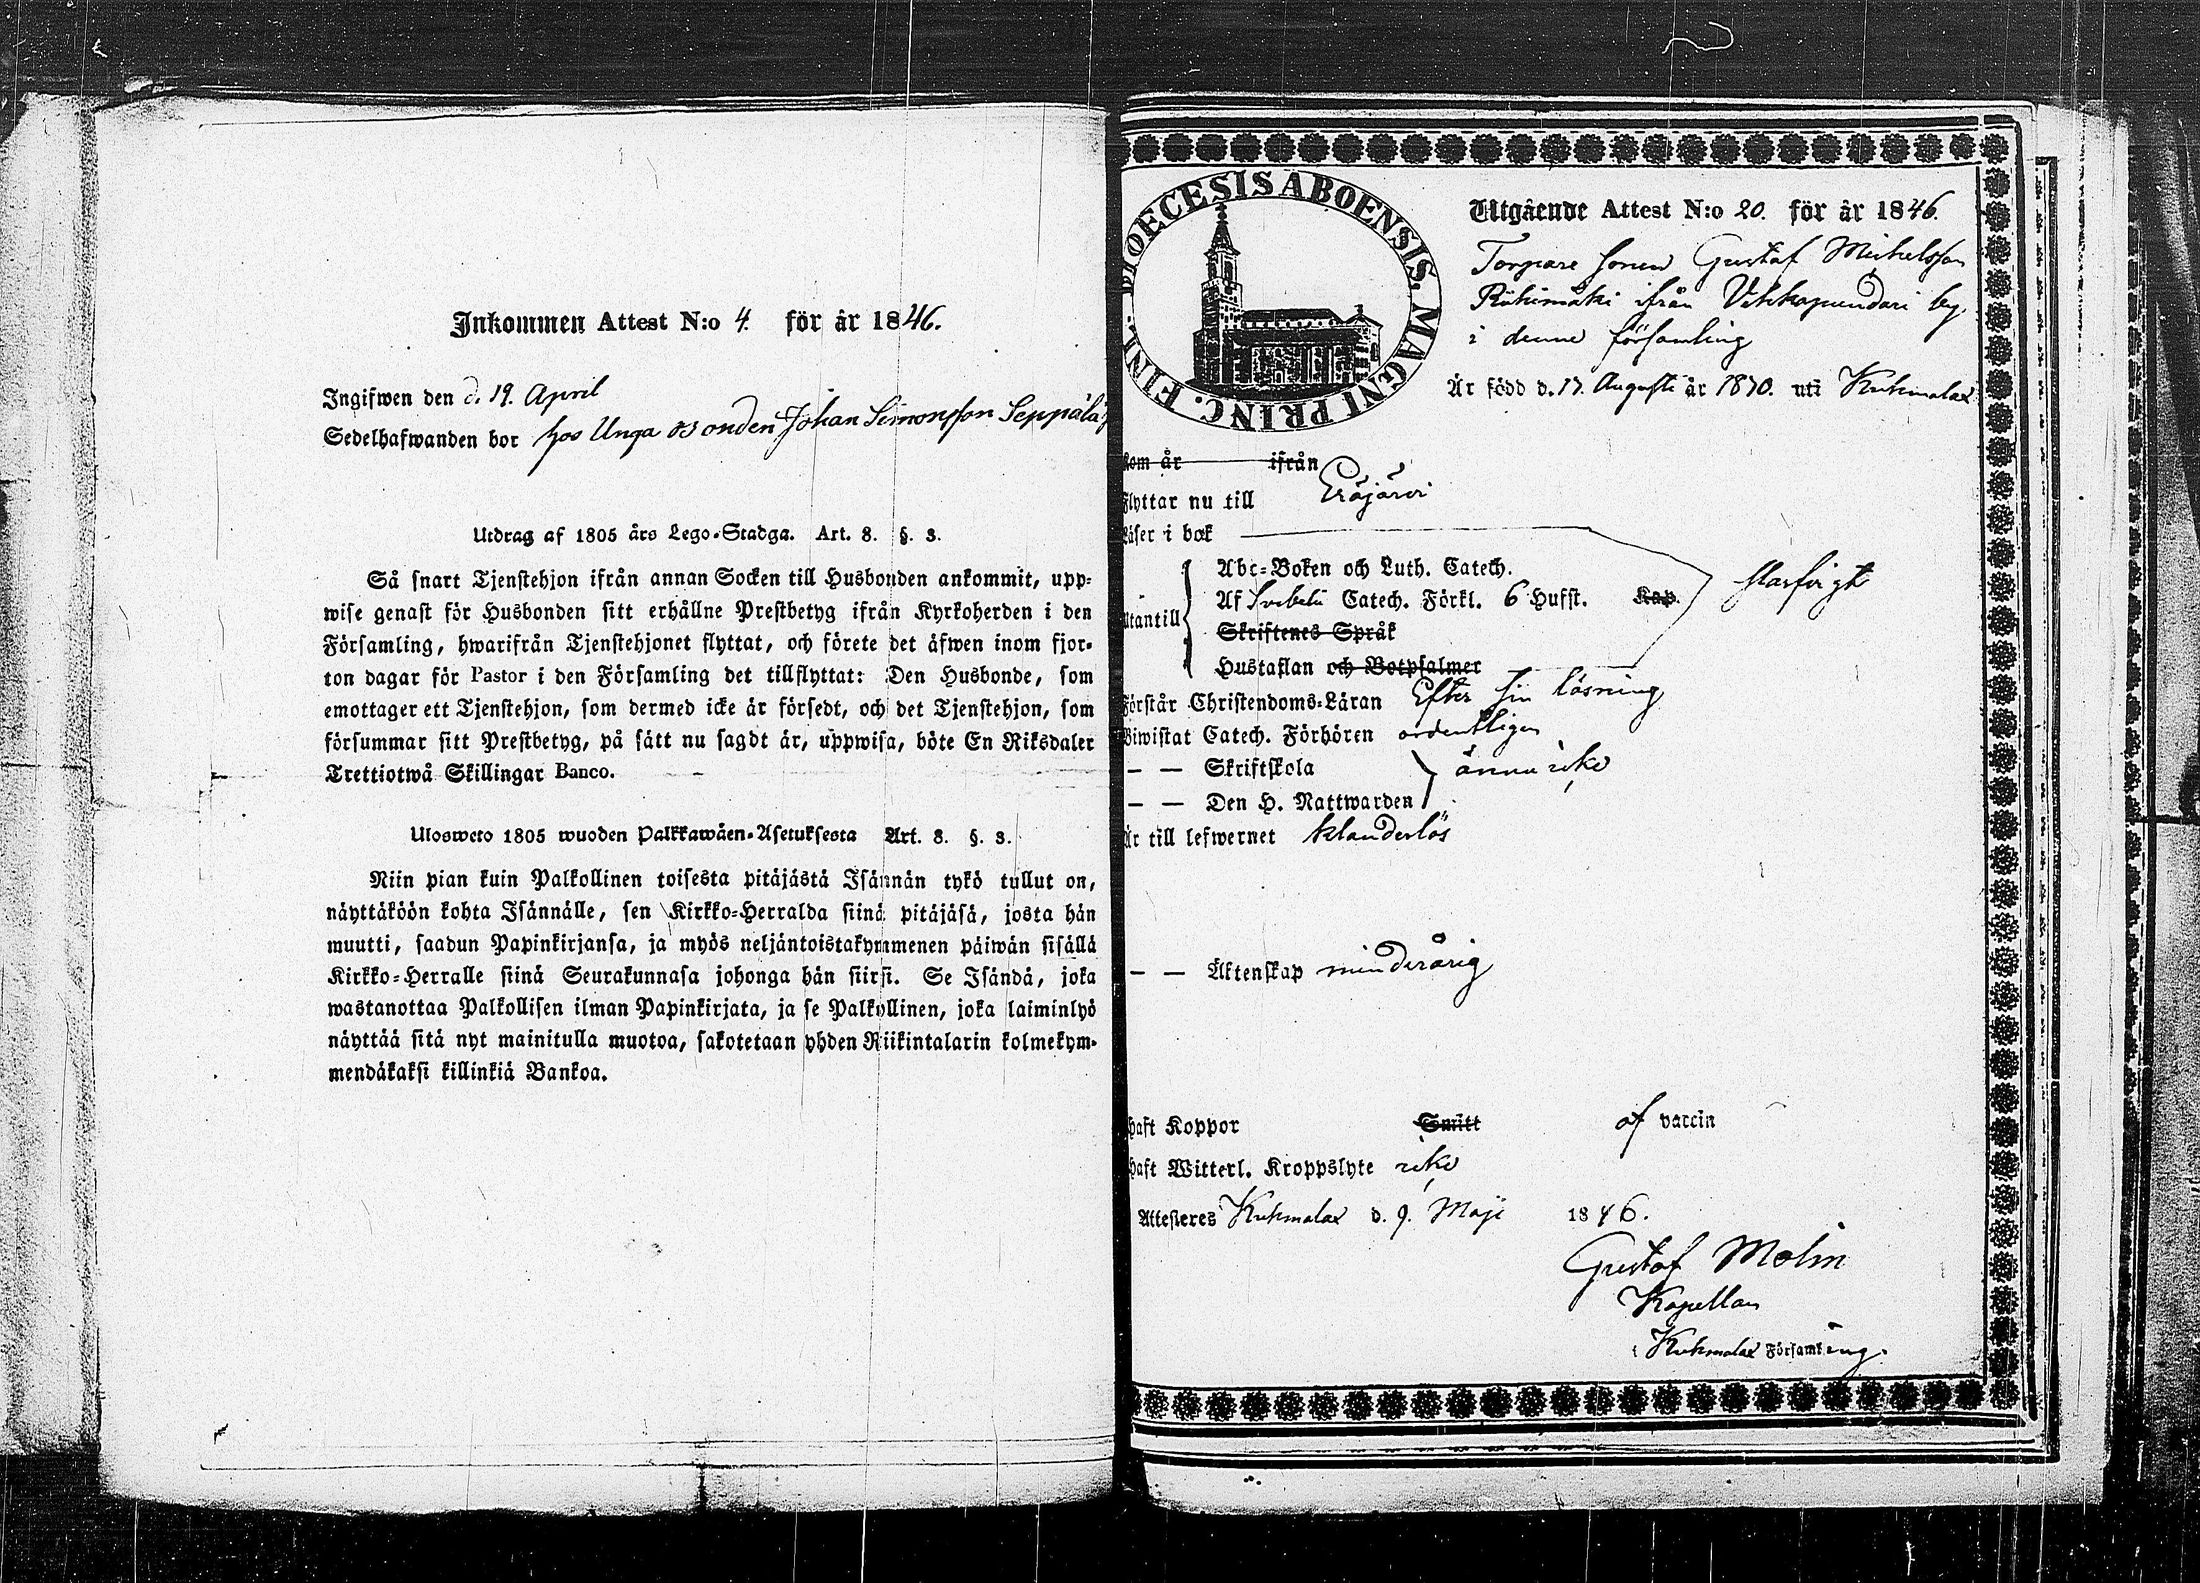 Inkommen Attest N:o 4. för år 1846.
Ingifwen den d. 19. April
Sedelhafwanden bor hos Unga Johan Simonsson Seppälä
Utdrag af 1805 års Lego-Stadga. Art. 8. §. 3.
Så snart Tjenstehjon ifrån annan Socken till Husbonden ankommit, upp-
wise genast för Husbonden sitt erhållne Prestbetyg ifrån Kyrkoherden i den
Församling, hwarifrån Tjenstehjonet flyttat, och förete det äfwen inom fjor-
ton dagar för Pastor i den Församling det tillflyttat: Den Husbonde, som
emottager ett Tjenstehjon, som dermed icke är försedt, och det Tjenstehjon, som
försummar sitt Prestbetyg, på sätt nu sagdt är, uppwisa, böte En Riksdaler
Trettiotwå Skillingar Banco.
Ulosweto 1805 wuoden Palkkawäen-Asetuksesta Art. 8. §. 3.
Niin pian kuin Palkollinen toisesta pitäjästä Isännän tykö tullut on,
näyttäköön kohta Isännälle, sen Kirkko-Herralda siinä pitäjäsä, josta hän
muutti, saadun Papinkirjansa, ja myös neljäntoistakymmenen päiwän sisällä
Kirkko-Herralle siinä Seurakunnasa johonga hän siirsi. Se Isändä, joka
wastanottaa Palkollisen ilman Papinkirjata, ja se Palkollinen, joka laiminlyö
näyttää sitä nyt mainitulla muotoa, sakotetaan yhden Riikintalarin kolmekym-
mendäkaksi killinkiä Bankoa.
DIOECESIS ABOENSIS. MAGNI PRINC. FINL.
Utgående Attest N:o 20. för år 1846.
Torpare sonen Gustaf Michelsson
Riihimäki ifrån Vehkapundari by
i denne församling
Är född d. 17. Augusti år 1830. uti Kuhmalax
kom år ifrån
Flyttar nu till Eräjärvi
Läser i bok
Abc-Boken och Luth. Catech.
Utantill Af Svebelii Catech. Förkl. 6 Hufst. Kap. slarfvigt
Skriftenes Språk
Hustaflan och Botpsalmer
Förstår Christendoms-Läran Efter sin läsning
Biwistat Catech. Förhören ordentligen
— — Skriftskola ännu icke
— — Den H. Nattwarden
Är till lefwernet klanderlös
— — Äktenskap minderårig
haft Koppor Smitt af vaccin
haft Witterl. Kroppslyte icke
Attesteres Kuhmalax d. 9. Maji 1846.
Gustaf Molin
Kapellan
i Kuhmalax Församling.